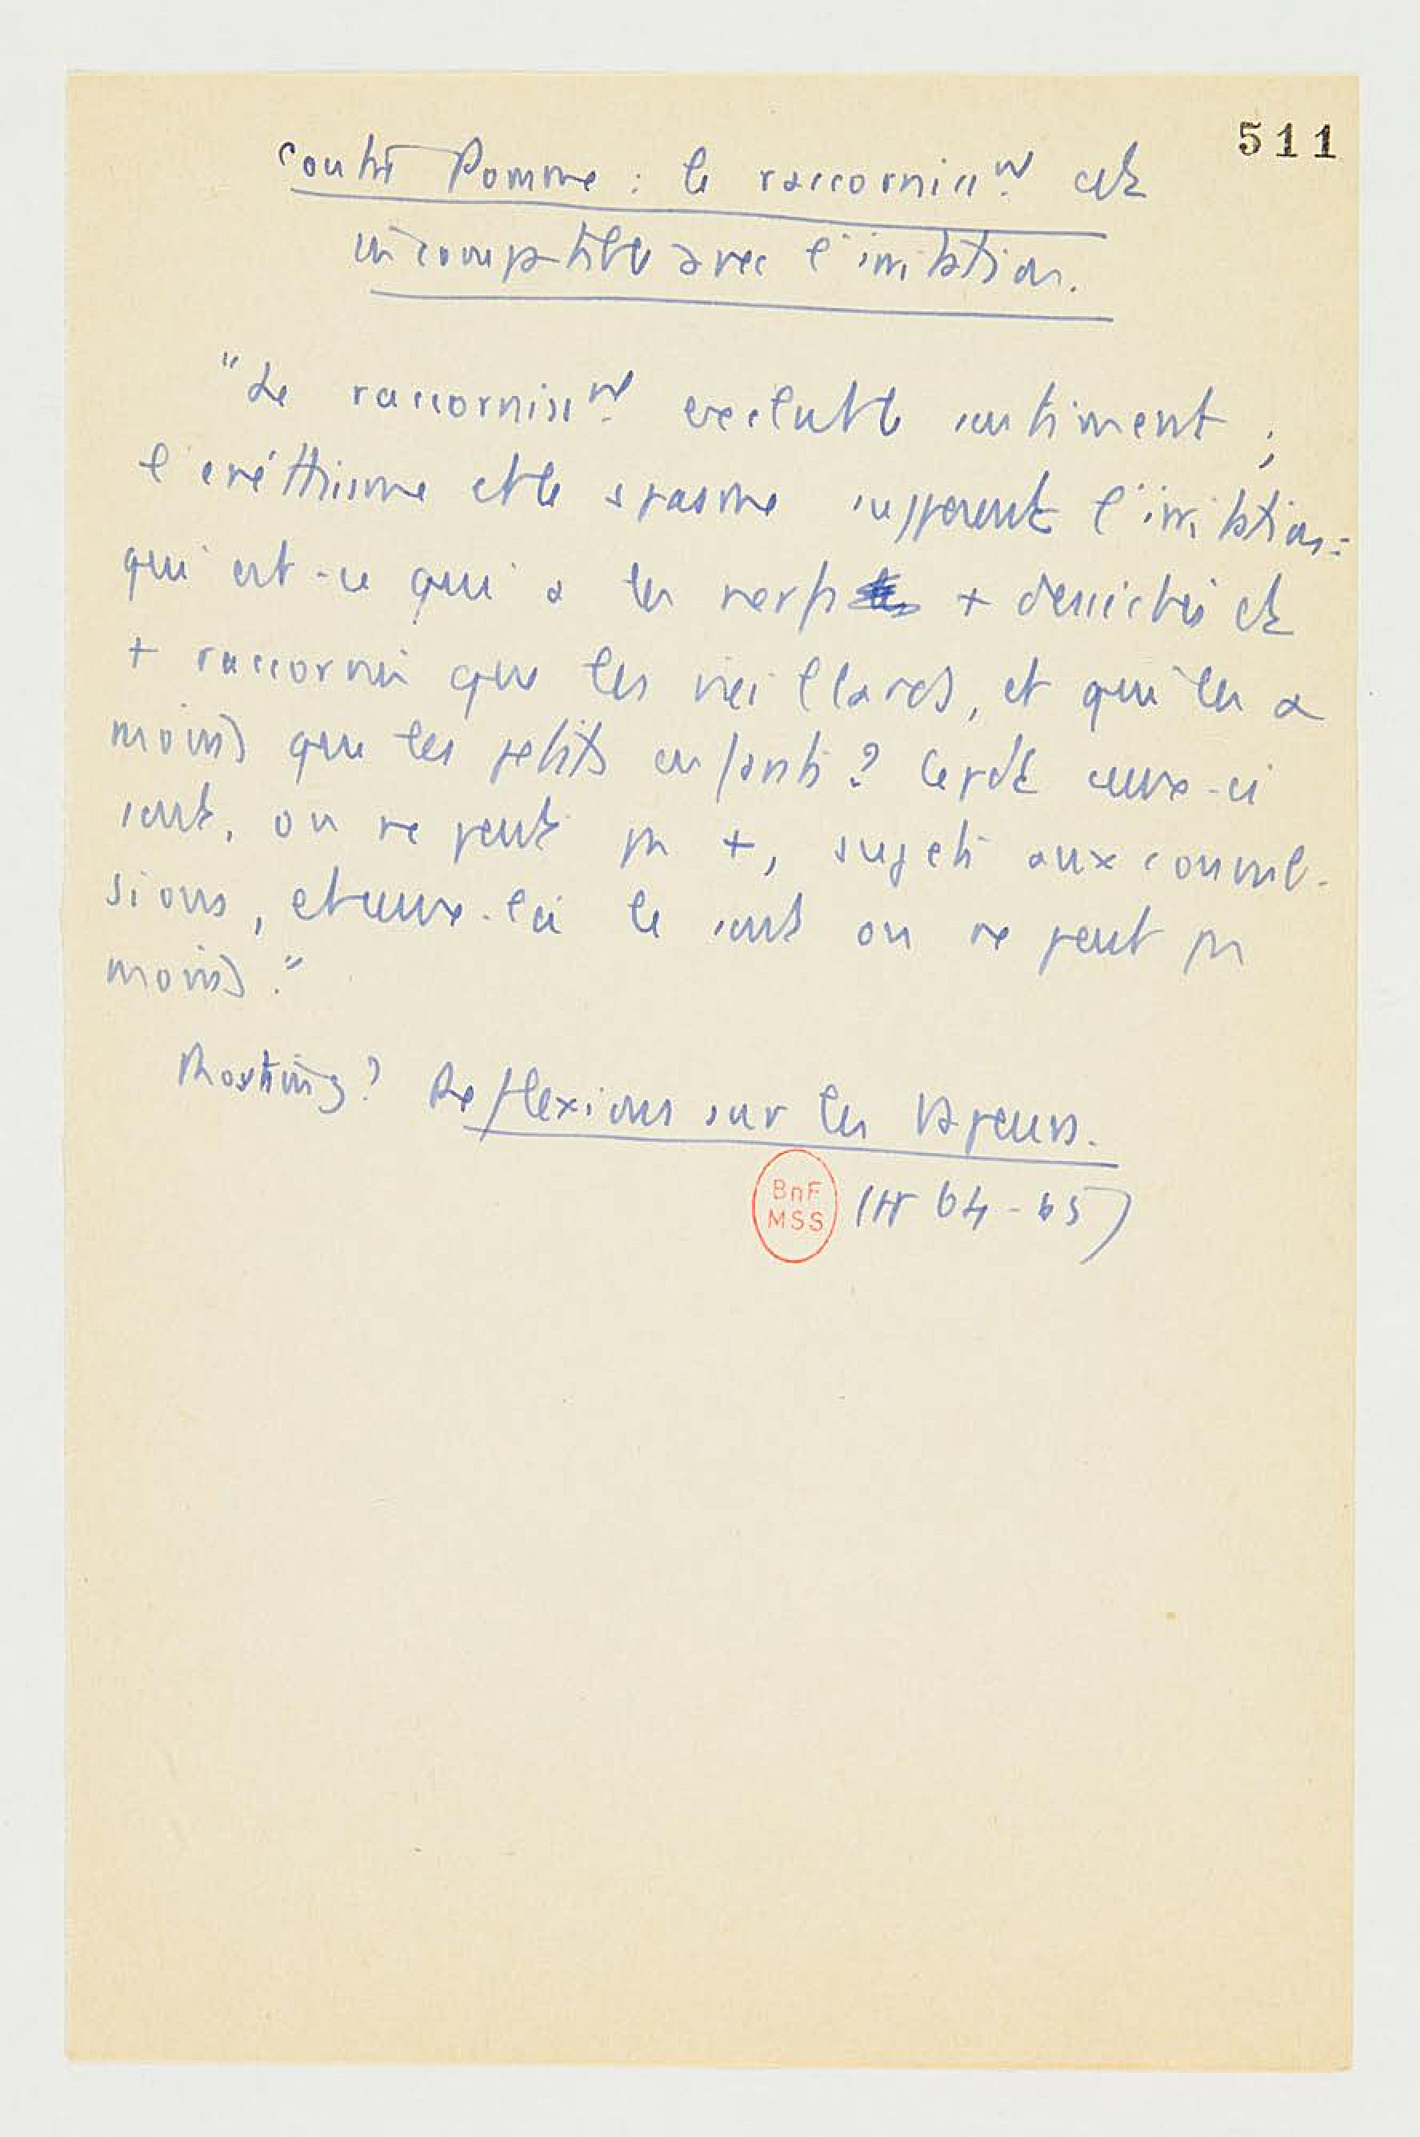 511
Contre Pomme : le raccorniss^mt est
incompatible avec l'irritation.
"Le raccorniss^mt exclut le sentiment ;
l'eréthisme et le spasme supposent l'irritation :
qui est-ce qui a les nerfs + desséchés et
+ raccornis que les vieillards, et qui les a
moins que les petits enfants ? Cepdt ceux-ci
sont, on ne peut pas +, sujets aux convul-
sions, et ceux-là le sont on ne peut pas
moins."
? Reflexions sur les Vapeurs.
BnF
MSS
(p 64-65)